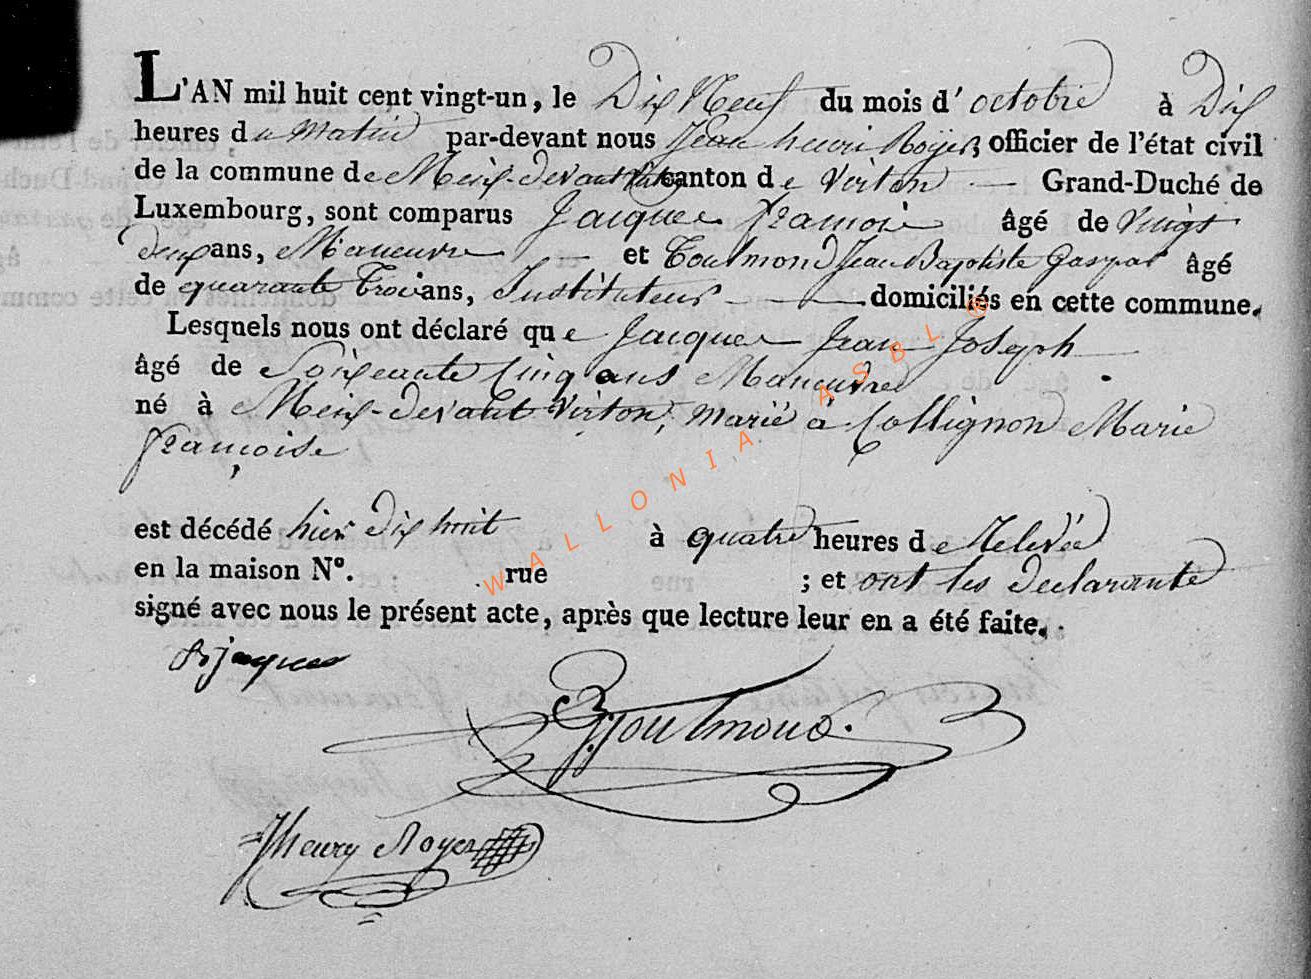 L'AN mil huit cent vingt-un, le Dix Neuf du mois d'octobre à Dix
heures du Matin par-devant nous Jean henri Royer, officier de l'état civil
de la commune de Meix devant Virton canton de Virton Grand-Duché de
Luxembourg, sont comparus Jacques françois âgé de vingt
deux ans, Maneuvre et Toulmond Jean Baptiste Gaspar âgé
de quarante Trois ans, Instituteur domiciliés en cette commune.
Lesquels nous ont déclaré que Jacques Jean Joseph
âgé de Soixante Cinq ans Maneuvre
né à Meix-devant Virton, marié à Collignon Marie
françoise
est décédé hier dix huit à quatre heures de Relevée
en la maison N°. rue ; et ont les declarants
signé avec nous le présent acte, après que lecture leur en a été faite.
jacques
Toulmond.
JHenry Royer
WALLONIA ASBL ®